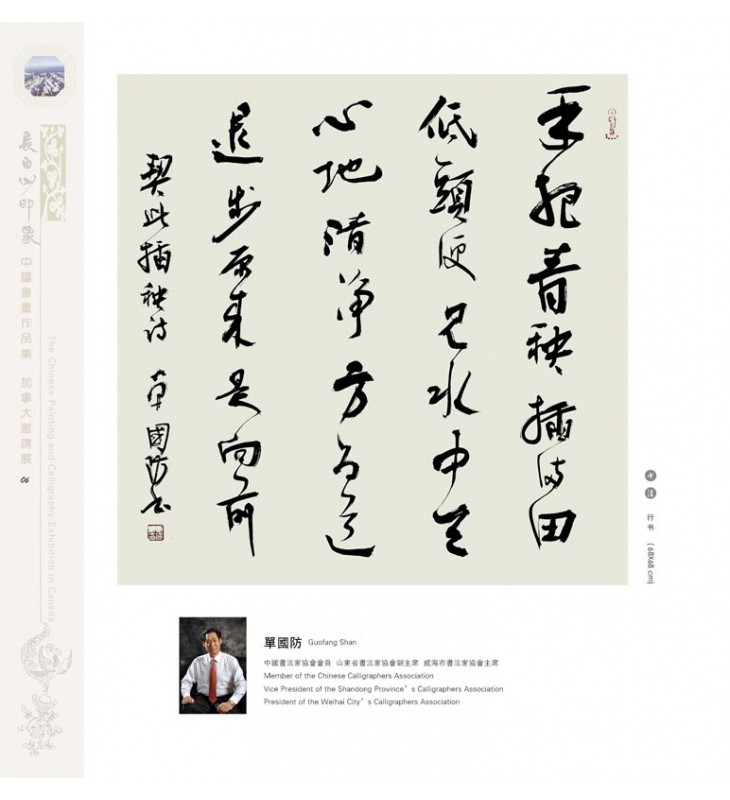 長白山印象
中國書畫作品集 加拿大邀請展 06
The Chinese Painting and Calligraphy Exhibition in Canada
手把青秧插满田
低頭便见水中天
心地清净方为道
退步原来是向前
契此插秧诗 单國防书
书法 行书 (68X68 cm)
單國防 Guofang Shan
中國書法家協會會員 山東省書法家協會副主席 威海市書法家協會主席
Member of the Chinese Calligraphers Association
Vice President of the Shandong Province’s Calligraphers Association
President of the Weihai City’s Calligraphers Association